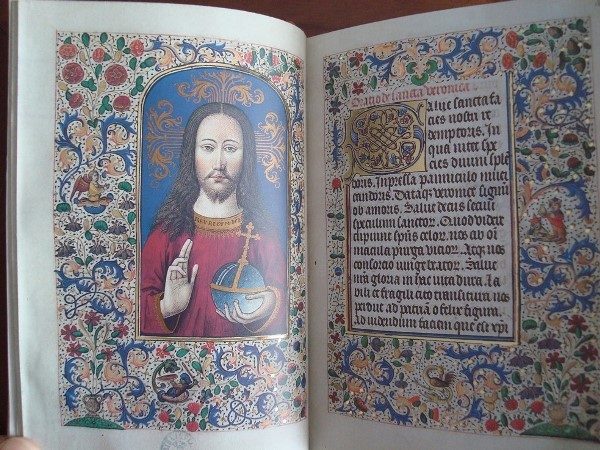 Oracio de sancta veronica
Salue sancta fa
cies nostri re
demptoris. In
qua nitet spē
cies diuini splē
doris. Inpressa panniculo niuei
candoris. Dataqȝ veronice signū
ob amoris. Salue decus seculi
speculum sanctoꝝ. Quod videre
cupiunt spūs celoꝝ. nos ab oī
macula purga vicioꝝ. Atqȝ nos
consorcio iunge beatoꝝ. Salue
nrā gloria in hac vita dura. la
bili et fragili cito transitura nos
perduc ad patriā o felix figura
Ad videndum faciem que est xpī